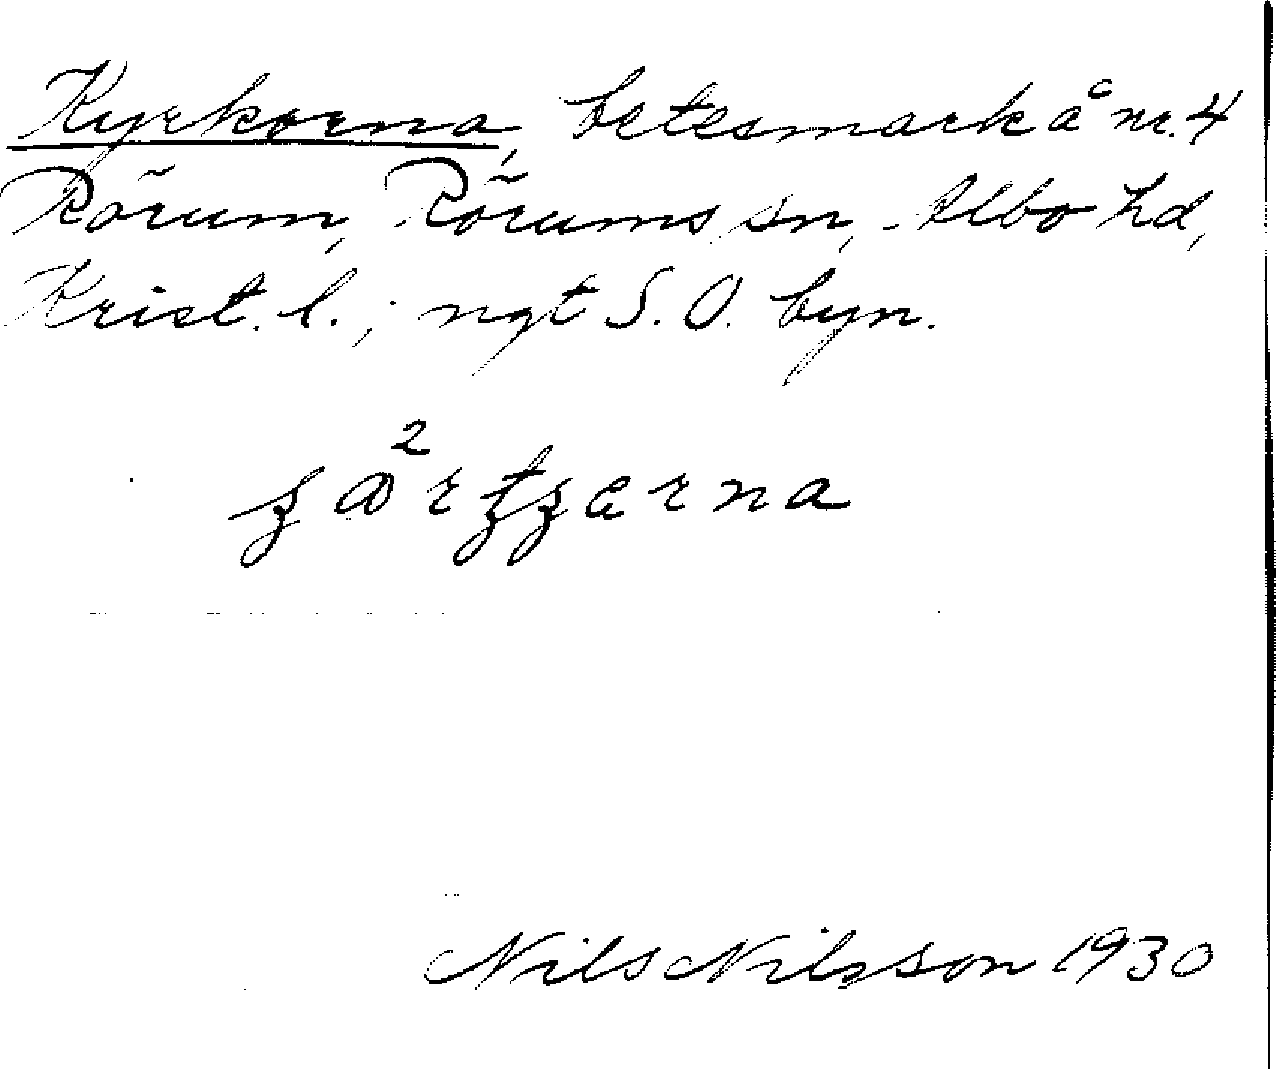 Kyrkorna, betesmark å nr. 4
Rörum, Rörums sn, Albo hd,
Krist. l.; ngt S. O. byn.
Nils Nilsson 1930